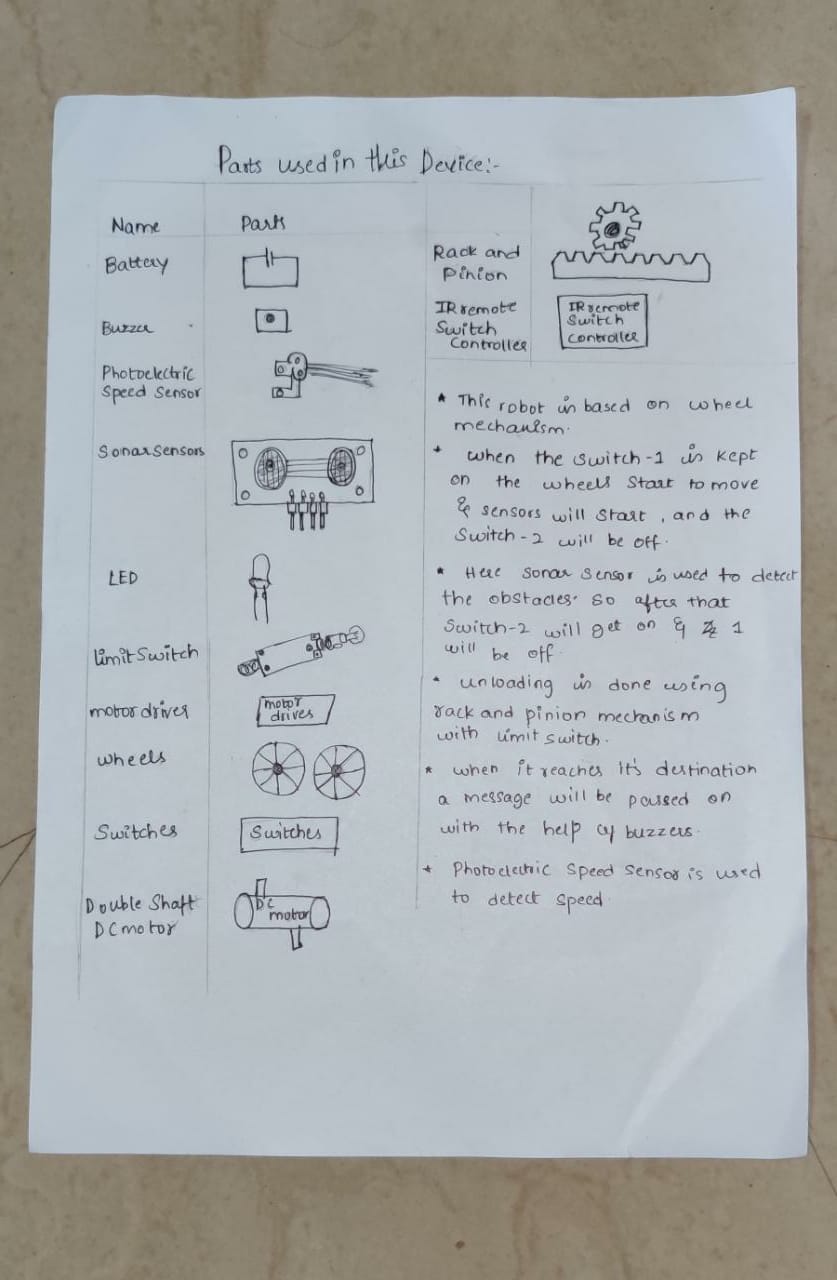 Parts used in this Device:-
Name Parts
Battery
Buzzer
Photoelectric
Speed Sensor
Sonar Sensors
LED
limit Switch
motor drives
motor
drives
wheels
Switches
Switches
Double Shaft
DC motor
DC
motor
Rack and
Pinion
IR remote
Switch
Controller
IR remote
Switch
Controller
* This robot is based on wheel
mechanism.
* when the switch-1 is kept
on the wheels start to move
& sensors will start, and the
Switch-2 will be off.
* Here sonar sensor is used to detect
the obstacles. So after that
Switch-2 will get on & 1
will be off.
* unloading is done using
rack and pinion mechanism
with limit switch.
* when it reaches it's destination
a message will be passed on
with the help of buzzers.
* Photoelectric Speed Sensor is used
to detect speed.